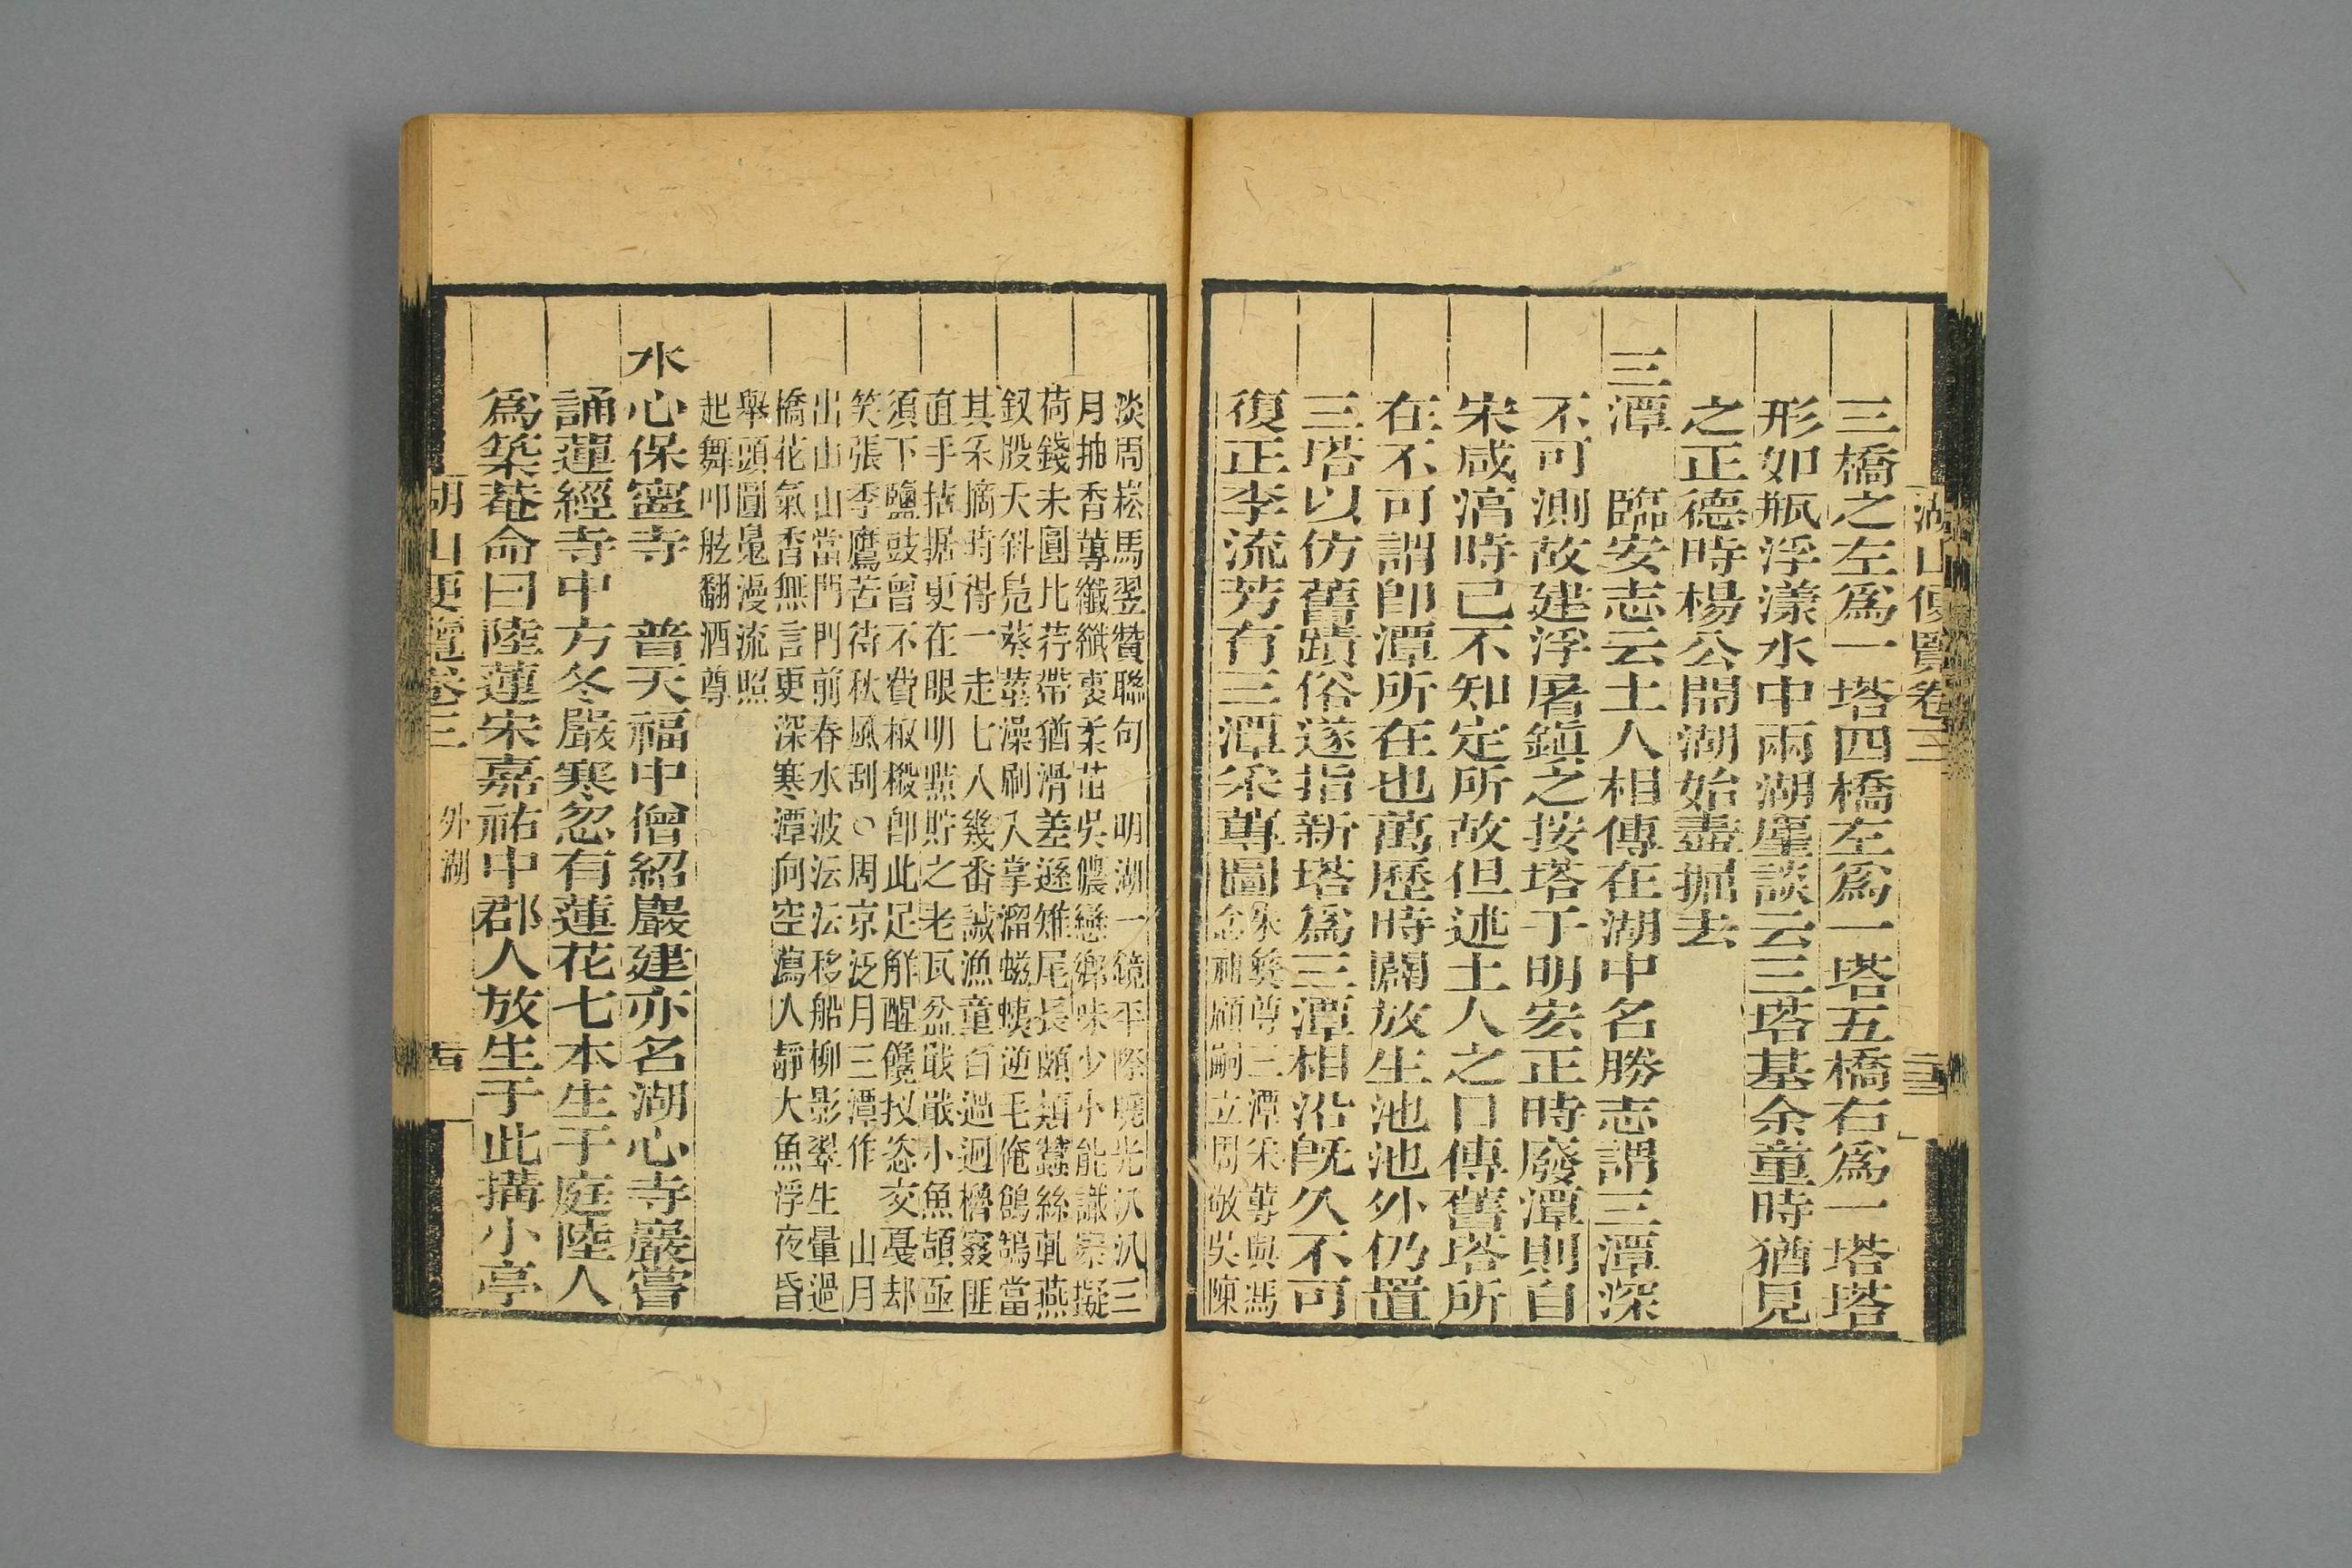 湖山便覽卷三
三橋之左爲一塔四橋左爲一塔五橋右爲一塔塔
形如瓶浮漾水中兩湖麈談云三塔基余童時猶見
之正德時楊公開湖始盡掘去
三潭　臨安志云土人相傳在湖中名勝志謂三潭深
不可測故建浮屠鎭之按塔于明宏正時廢潭則自
宋咸淳時已不知定所故但述土人之口傳舊塔所
在不可謂卽潭所在也萬歷時闢放生池池外仍置
三塔以仿舊蹟俗遂指新塔爲三潭相沿旣久不可
復正李流芳有三潭采蓴圖
尊三潭采蓴與馮
顧嗣立周敬吳陳
淡周崧馬翌贊聯句　明湖一鏡平際曉光汎汎三
月抽香蓴纖纖裛柔茁吳儂戀鄉味少小能識家擬
荷錢未圓比荇帶猶滑差遜雉尾長頗類蠶絲軋燕
釵股天斜鳧葵莖澡刷入掌溜蝘蜓逆毛俺鴿鴰當
其采摘時得一走七八幾番誡漁童百過迴櫓窡匪
直手拮据更在眼明黠貯之老瓦盆戢戢小魚頡亟
須下鹽豉曾不費椒樧卽此足解酲饞扠恣交戛却
笑張季鷹苦待秋風刮○周京泛月三潭作　山月
出山山當門門前春水波沄沄移船柳影翠生暈過
橋花氣香無言更深寒潭向空蔿人靜大魚浮夜昏
舉頭圓晁漫流照
起舞叩舷翻酒尊
水心保寧寺　普天福中僧紹巖建亦名湖心寺巖嘗
誦蓮經寺中方冬嚴寒忽有蓮花七本生于庭陸人
爲築菴命曰陸蓮宋嘉祐中郡人放生于此搆小亭
湖山便覽卷三　外湖